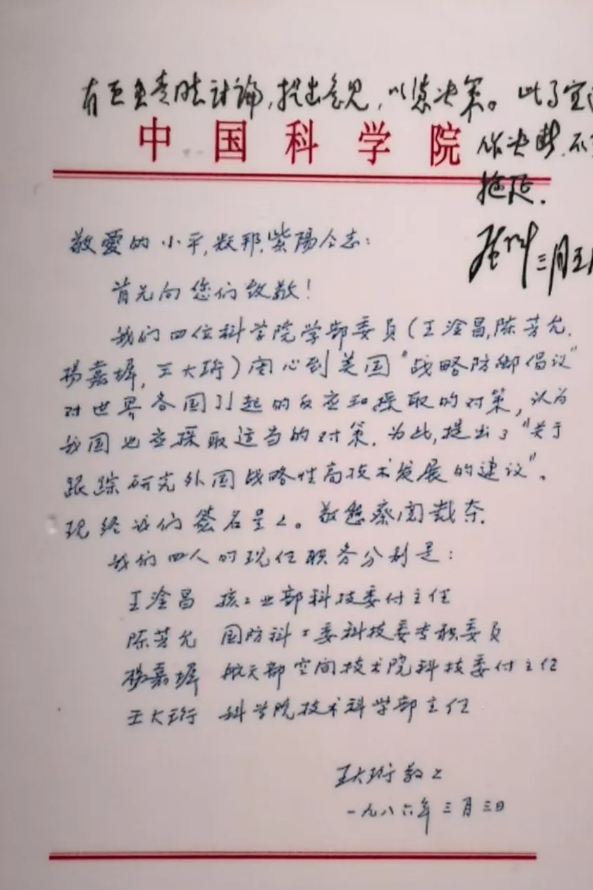 有关负责同志讨论,提出意见,以凭决策。此事宜
中国科学院
作决断,不
拖延.
三月五
敬爱的小平,耀邦,紫陽仝志:
首先向您们致敬!
我们四位科学院学部委员(王淦昌,陈芳允,
杨嘉墀,王大珩)关心到美国“战略防御倡议”
对世界各国引起的反应和采取的对策,认为
我国也应采取适当的对策,为此,提出了“关于
跟踪研究外国战略性高技术发展的建议”。
现经我们签名呈上。敬恳察阅裁夺.
我们四人的现任职务分别是:
王淦昌 核工业部科技委付主任
陈芳允 国防科工委科技委专职委员
杨嘉墀 航天部空间技术院科技委付主任
王大珩 科学院技术科学部主任
王大珩敬上
一九八六年三月三日